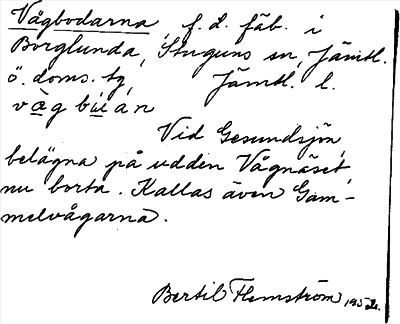 Vågbodarna f. d. fäb. i
Borglunda, Stuguns sn, Jämtl.
ö. doms. tg, Jämtl. l.
vàgbúan
Vid Gesundsjön,
belägna på udden Vågnäset,
nu borta. Kallas även Gam-
melvågarna.
Bertil Flemström 1952.